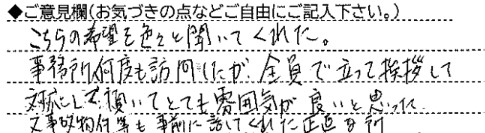 ◆ご意見欄(お気づきの点などご自由にご記入下さい。)
こちらの希望を色々と聞いてくれた。
事務所何度も訪問したが、全員で立って挨拶して
対応して頂いてとても雰囲気が良いと思った
又事故物件等も事前に話してくれた正直な所